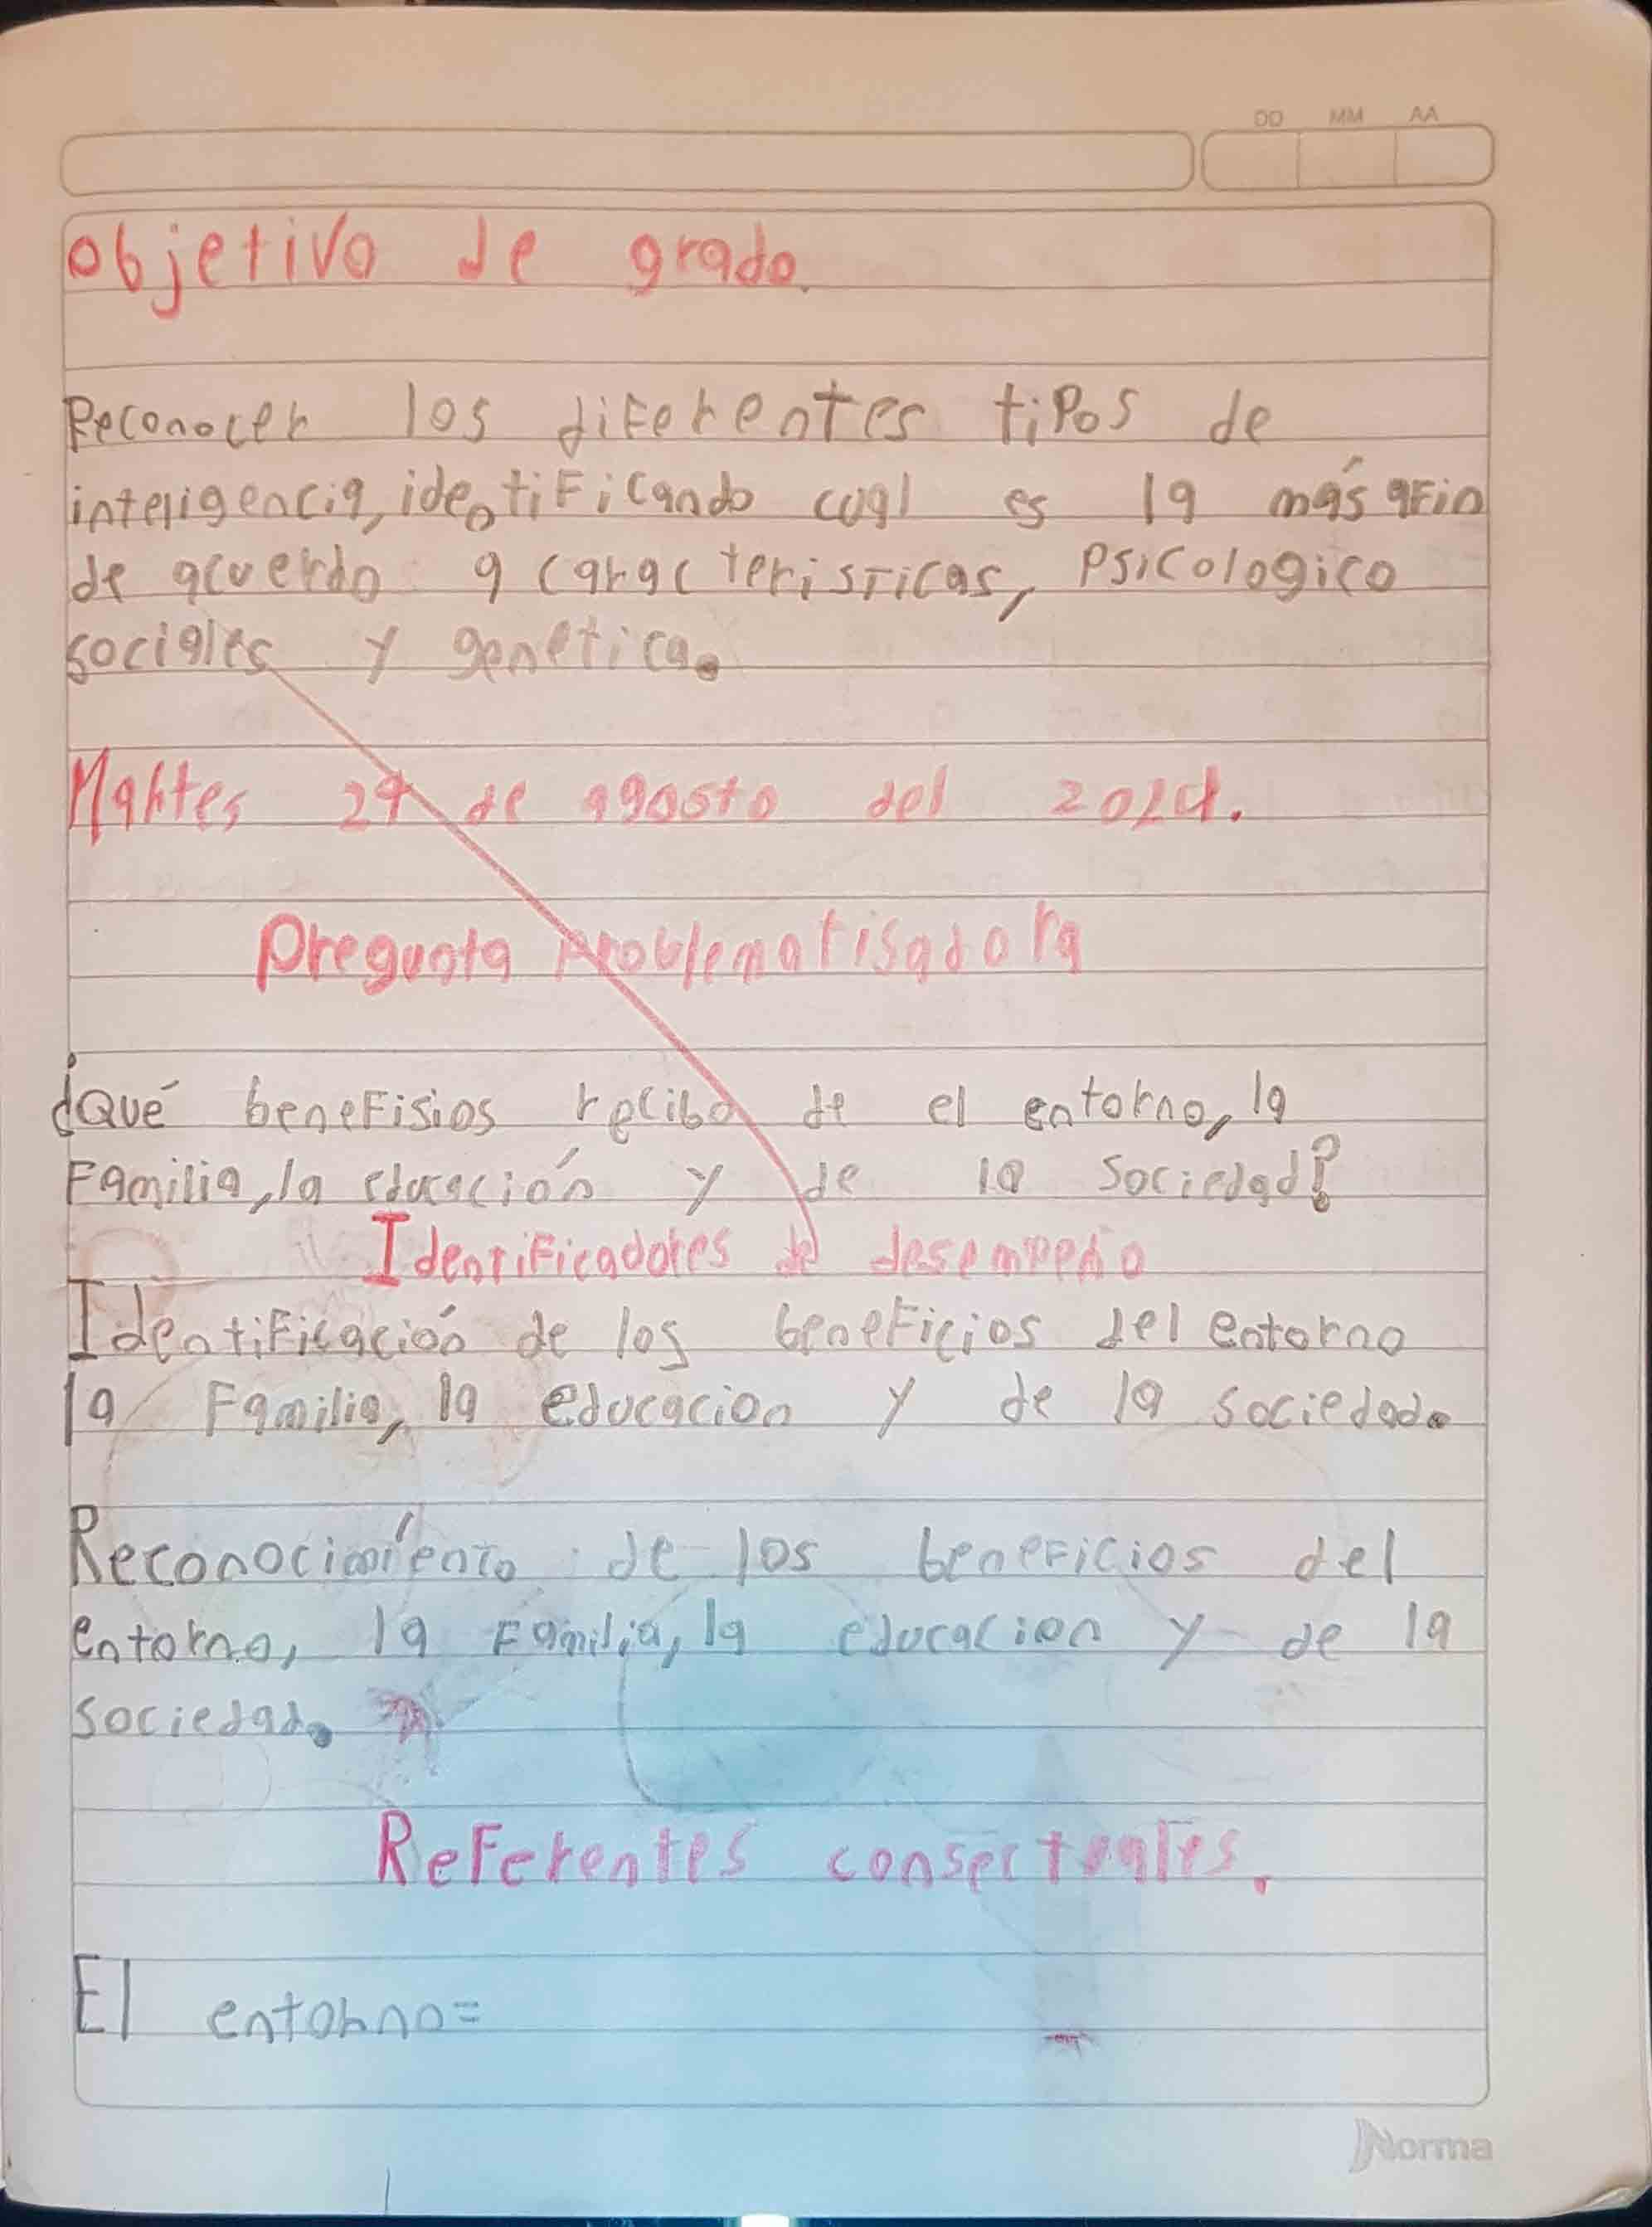 DD MM AA
objetivo de grado.
Reconocer los diferentes tipos de
inteligencia, identificando cual es la más afin
de acuerdo a caracteristicas, psicologico
sociales y genetica.
Martes 27 de agosto del 2024.
Pregunta problematisadora
¿Qué benefisios recibo de el entorno, la
Familia, la educación y de la sociedad?
Identificadores de desempeño
Identificación de los beneficios del entorno
la Familia, la educacion y de la sociedad.
Reconocimíento de los beneficios del
entorno, la Familia, la educacion y de la
sociedad.
Referentes consectuales.
El entorno=
Norma